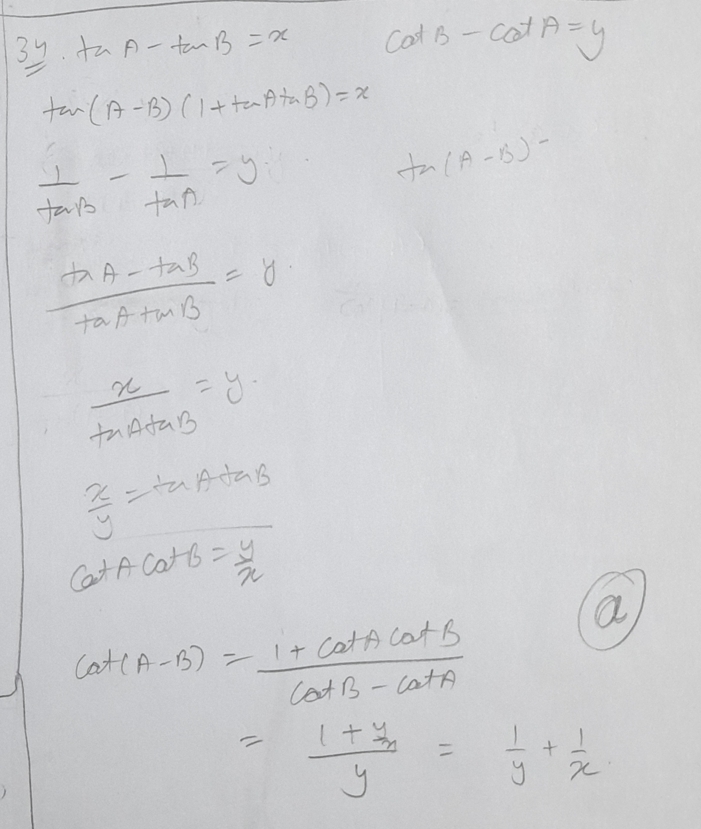 34. tan A - tan B = x    cot B - cot A = y
tan (A - B) (1 + tan A tan B) = x
1/tan B - 1/tan A = y.    tan (A - B) =
(tan A - tan B)/(tan A tan B) = y.
x/(tan A tan B) = y.
x/y = tan A tan B
Cot A Cot B = y/x
Cot (A - B) = (1 + Cot A Cot B)/(Cot B - Cot A)    a
= (1 + y/x)/y = 1/y + 1/x.